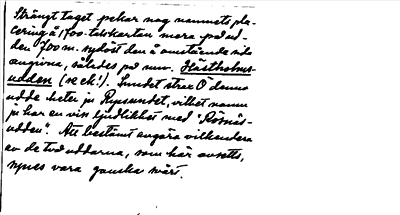 Strängt taget pekar nog namnets pla-
cering å 1700-talskartan mera på ud-
den 700 m. sydöst den å omstående sida
angivna, således på nuv. Hästholms-
udden (se ek!). Sundet strax O denna
udde heter ju Rysssundet, vilket namn
ju har en viss ljudlikhet med "Rösnäs-
udden". Att bestämt avgöra vilkendera
av de två uddarna, som här avsetts,
synes vara ganska svårt.